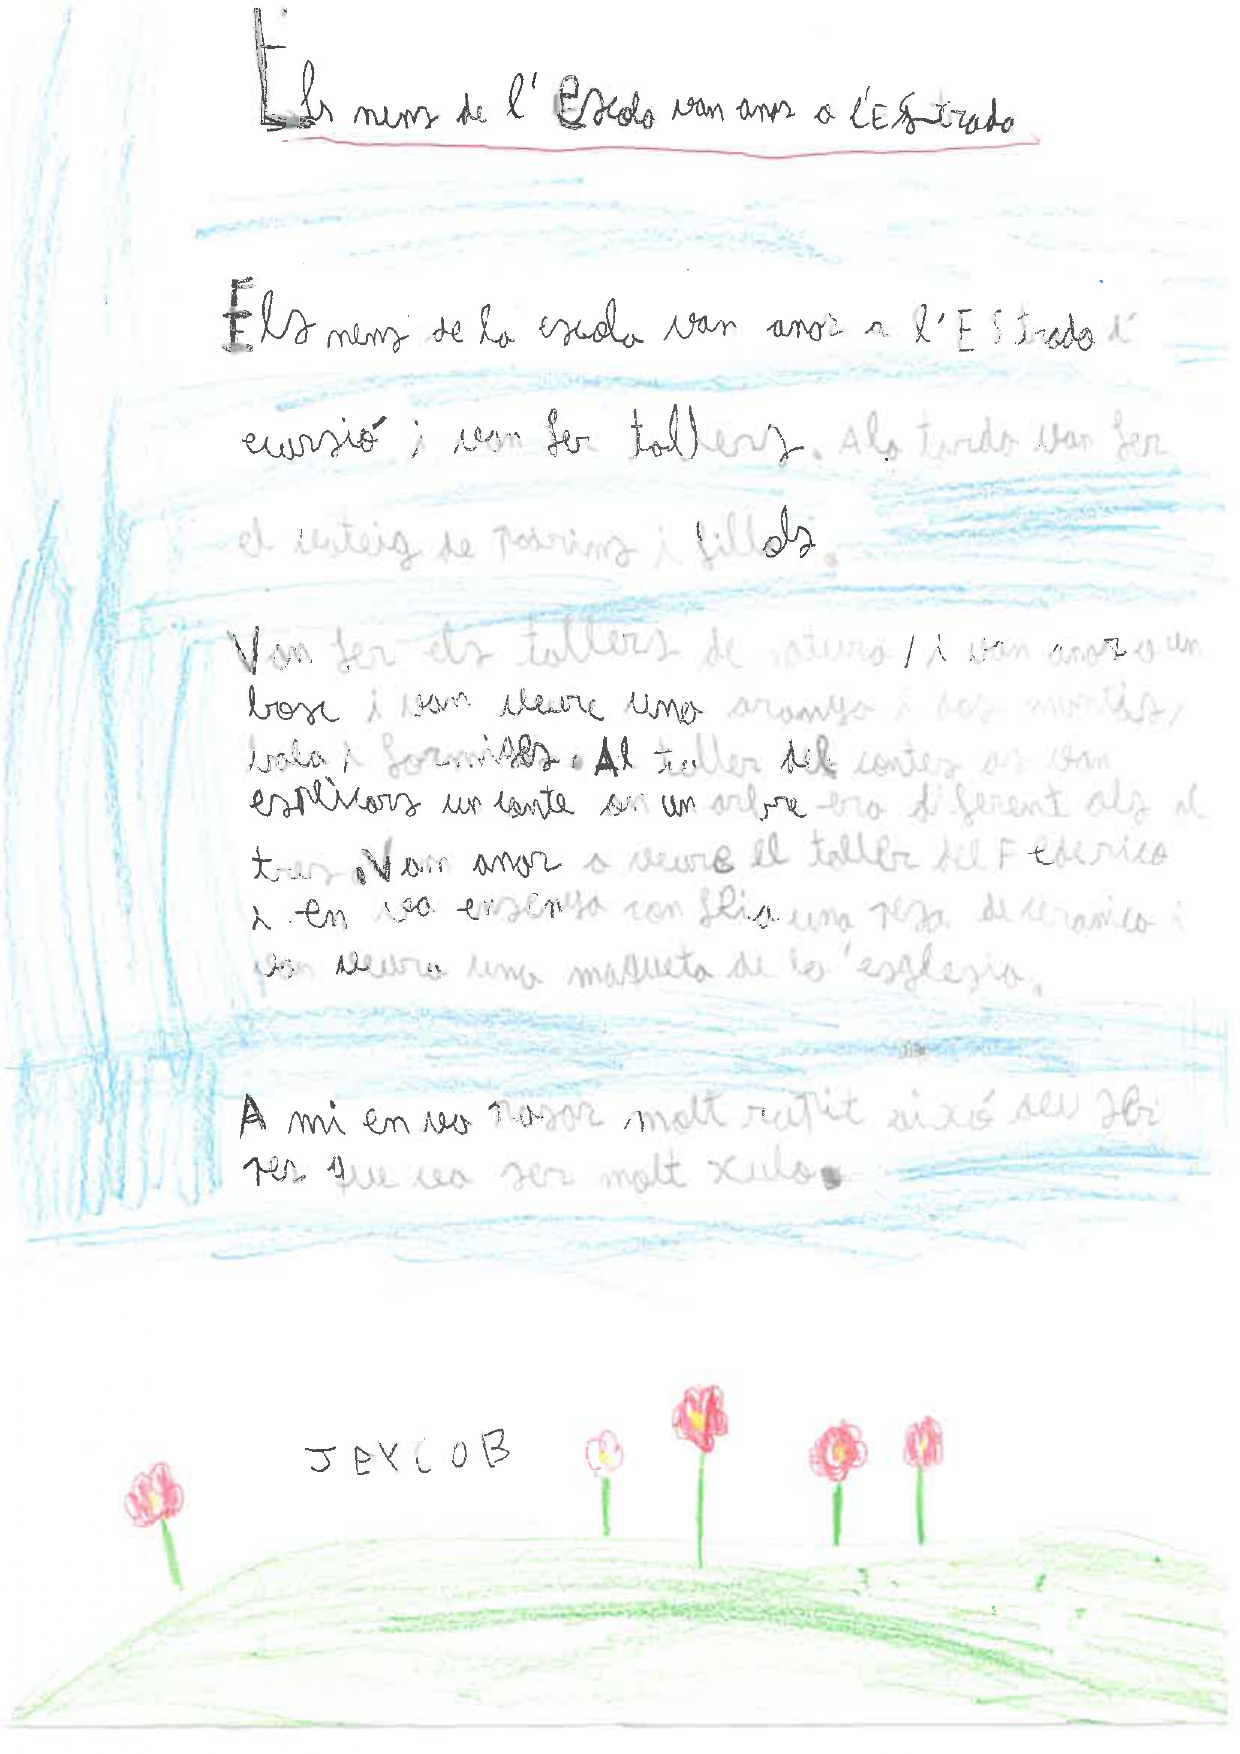 Els nens de l'Escola van anar a l'EStrada
Els nens de la escola van anar a l'EStrada d'
ecursió i van fer tallers. A la tarda van fer
el sorteig de Padrins i fillols.
Van fer els tallers de natura / i van anar a un
bosc i van veure una aranya i
i formigas. Al taller del contes as van
esplicars un conte on un arbre era diferent als al
tres. Van anar a veure el taller del Federico
i en va ensenya con feia una pesa de ceramica i
van veura una maqueta de la 'esglesia.
A mi en va pasar molt rapit aixó deu ser
per que va ser molt xulo.
JEYCOB